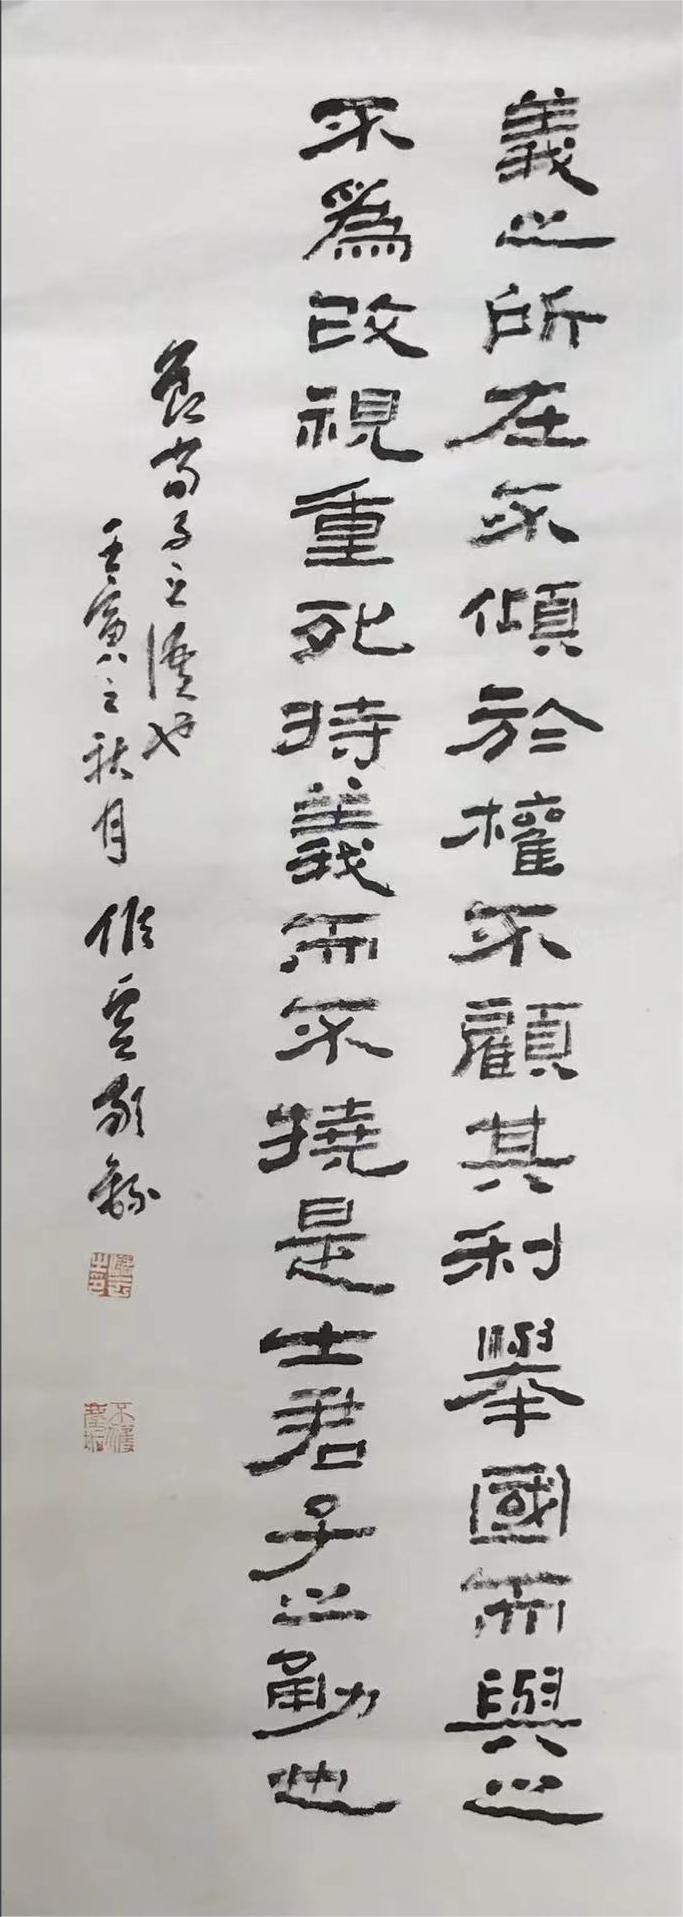 義之所在不傾於權不顧其利舉國而與之
不爲改視重死持義而不撓是士君子之勇也
之
壬寅之秋月